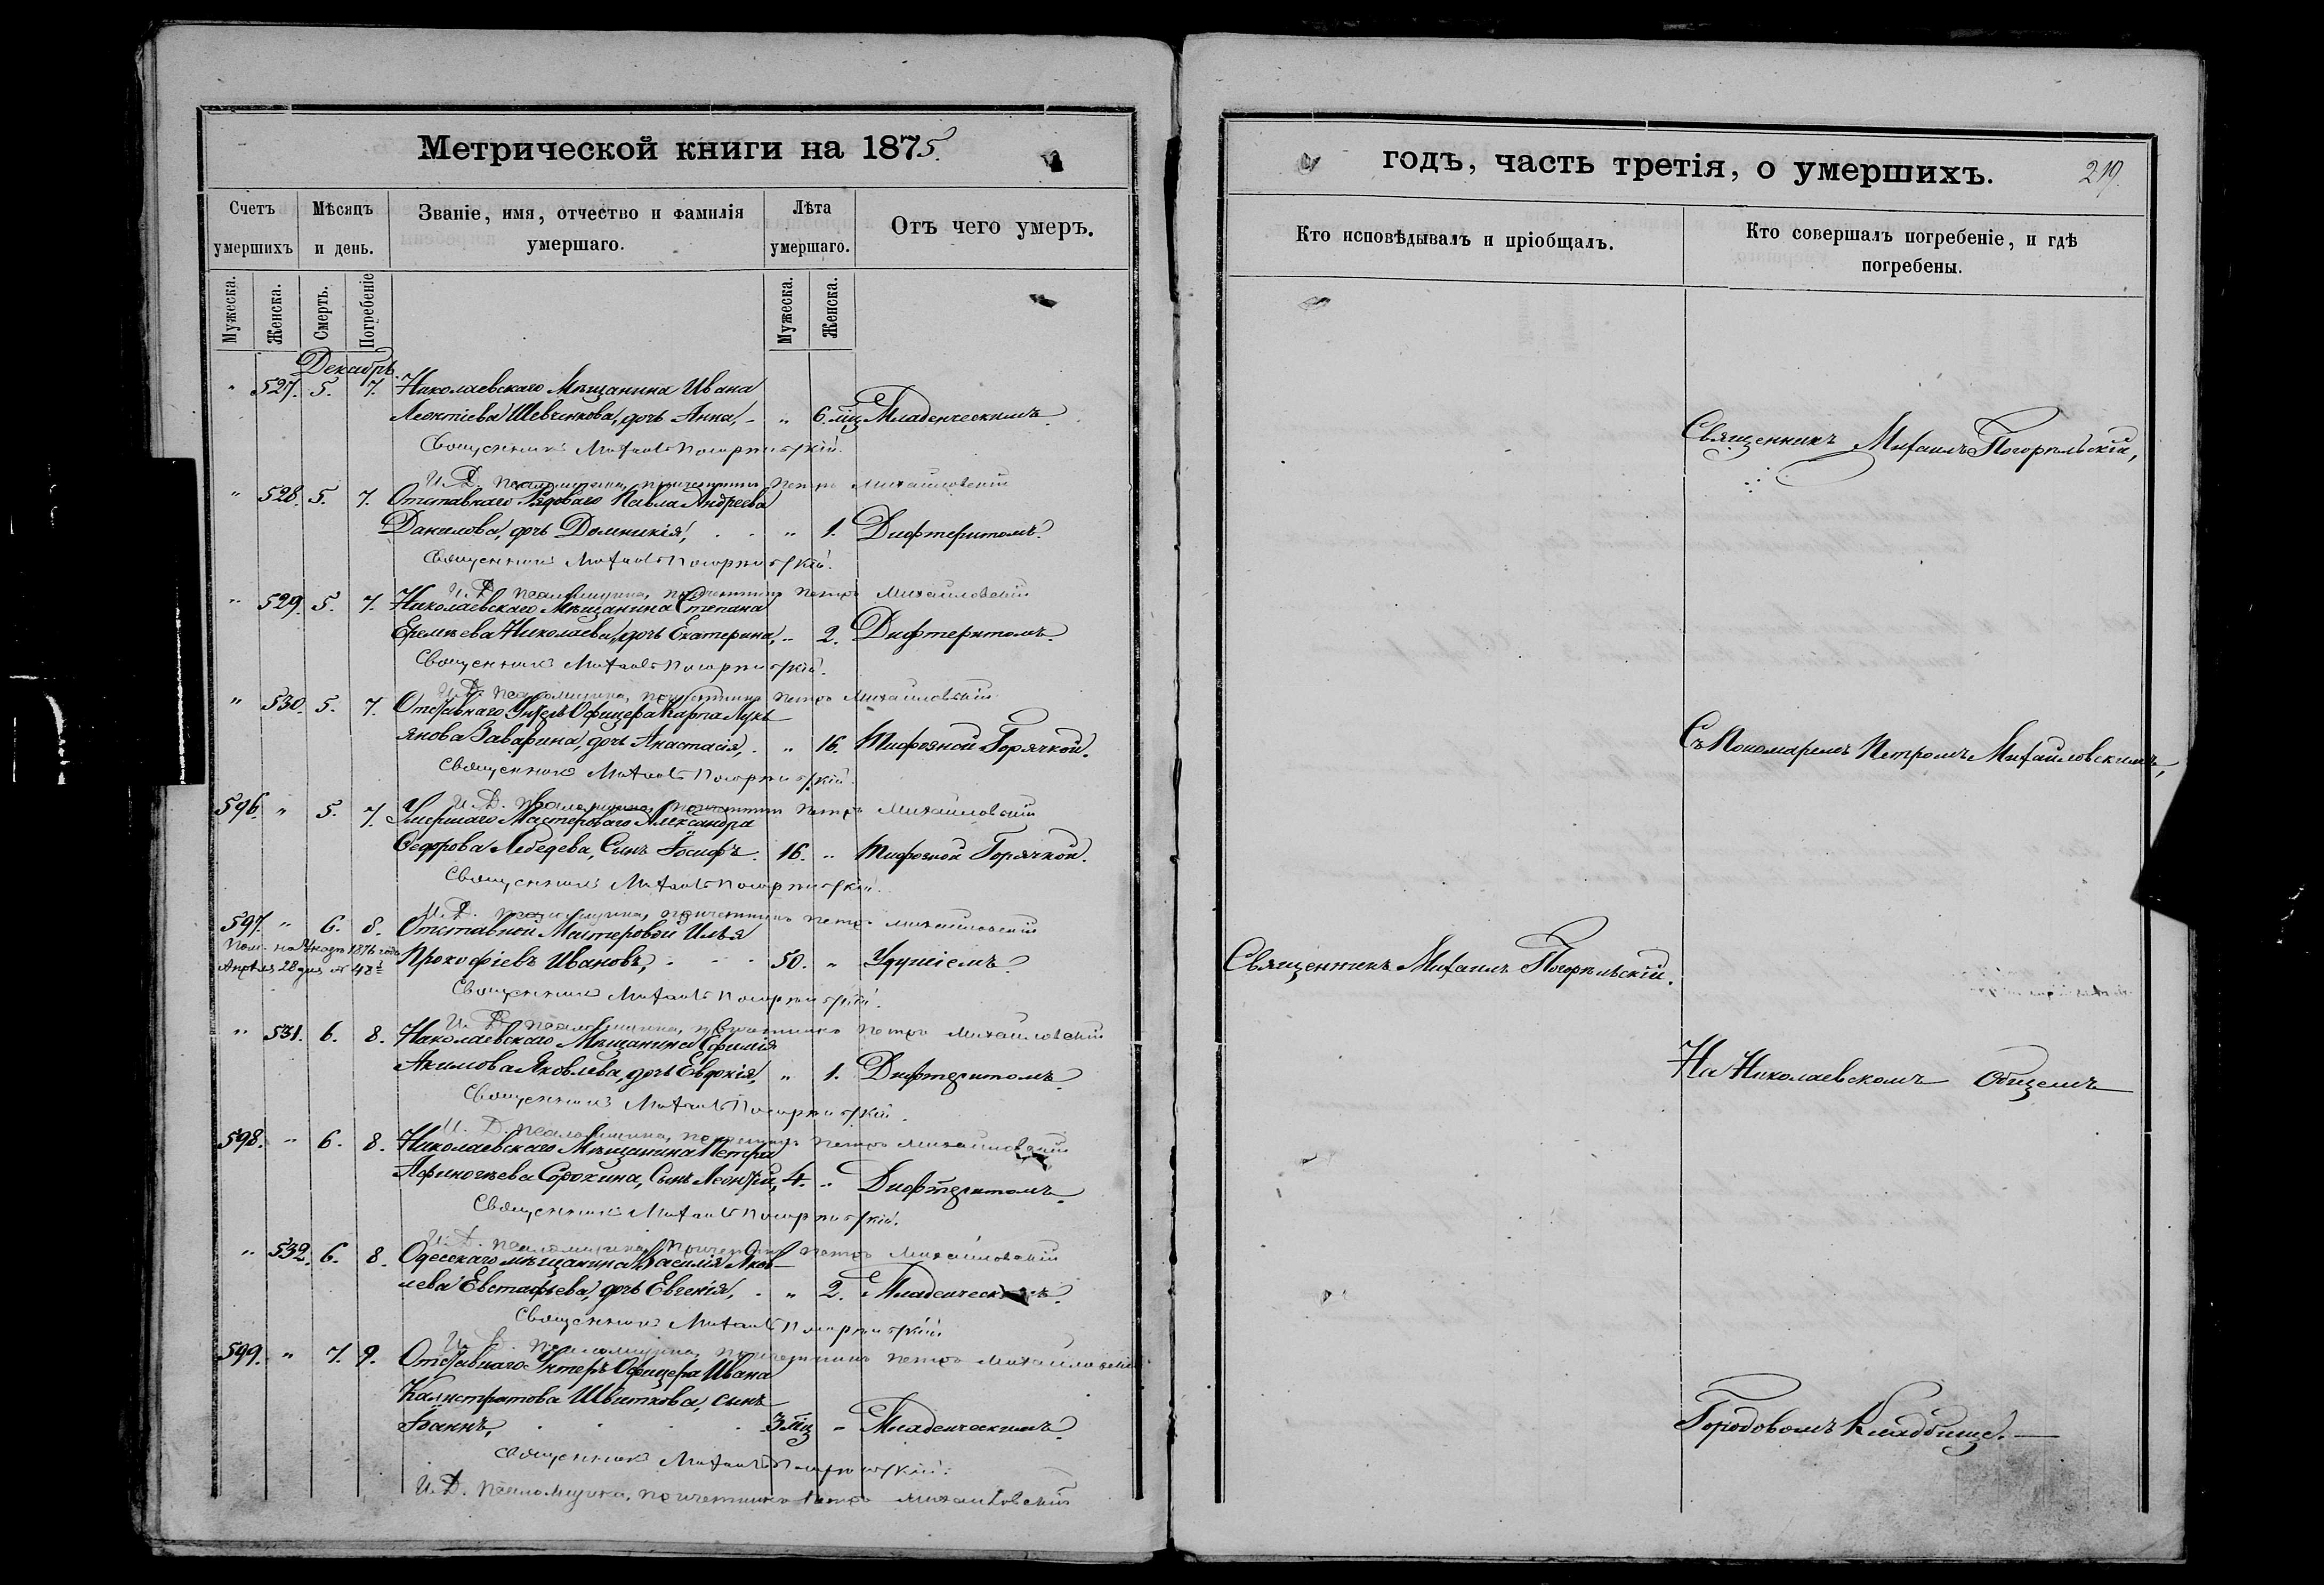 Метрической книги на 1875.
Счетъ умершихъ
Мѣсяцъ и день.
Званіе, имя, отчество и фамилія умершаго.
Лѣта умершаго.
Отъ чего умеръ.
Мужеска.
Женска.
Смерть.
Погребеніе
Мужеска.
Женска.
Декабрь.
" 527. 5. 7. Николаевскаго Мѣщанина Ивана
Леонтіева Шевченкова, дочь Анна, - " 6 мц Младенческимъ.
Священникъ Михаилъ Погорѣльскій.
И. Д. Псаломщика, причетникъ Петръ Михайловскій
" 528. 5. 7. Отставнаго Рядоваго Павла Андреева
Данилова, дочь Домникія, . . " 1. Дифтеритомъ.
Священникъ Михаилъ Погорѣльскій.
И. Д. Псаломщика, причетникъ Петръ Михайловскій
" 529. 5. 7. Николаевскаго Мѣщанина Степана
Еремѣева Николаева, дочь Екатерина, " 2. Дифтеритомъ.
Священникъ Михаилъ Погорѣльскій.
И. Д. Псаломщика, причетникъ Петръ Михайловскій
" 530. 5. 7. Отставнаго Унтеръ Офицера Карпа Лукь
янова Заварина, дочь Анастасія, . " 16. Тифозной Горячкой.
Священникъ Михаилъ Погорѣльскій.
И. Д. Псаломщика, причетникъ Петръ Михайловскій
596. " 5. 7. Умершаго Мастероваго Александра
Ѳедорова Лебедева, Сынъ Іосифъ. 16. " Тифозной Горячкой.
Священникъ Михаилъ Погорѣльскій.
И. Д. Псаломщика, причетникъ Петръ Михайловскій
597. " 6. 8. Отставной Мастеровой Илья
Прокофіевъ Ивановъ, . . . 50. " Удушіемъ.
на Указъ 1876 года
Апрѣля 28 дня №
Священникъ Михаилъ Погорѣльскій.
И. Д. Псаломщика, причетникъ Петръ Михайловскій
" 531. 6. 8. Николаевскаго Мѣщанина Ефимія
Акимова Яковлева, дочь Евдокія, " 1. Дифтеритомъ.
Священникъ Михаилъ Погорѣльскій.
И. Д. Псаломщика, причетникъ Петръ Михайловскій
598. " 6. 8. Николаевскаго Мѣщанина Петра
Афиногѣева Сорокина, Сынъ Леонтій, 4. " Дифтеритомъ.
Священникъ Михаилъ Погорѣльскій.
И. Д. Псаломщика, причетникъ Петръ Михайловскій
" 532. 6. 8. Одесскаго мѣщанина Василія Яков-
лева Евстафьева, дочь Евгенія, . " 2. Младенческимъ.
Священникъ Михаилъ Погорѣльскій
И. Д. Псаломщика, причетникъ Петръ Михайловскій
599. " 7. 9. Отставнаго Унтеръ Офицера Ивана
Калистратова Швиткова, сынъ
Іоаннъ, . . . . 3 мц " Младенческимъ.
Священникъ Михаилъ Погорѣльскій.
И. Д. Псаломщика, причетникъ Петръ Михайловскій
годъ, часть третія, о умершихъ.
219.
Кто исповѣдывалъ и пріобщалъ.
Кто совершалъ погребеніе, и гдѣ погребены.
Священникъ Михаилъ Погорѣльскій,
Съ Пономаремъ Петромъ Михайловскимъ,
Священникъ Михаилъ Погорѣльскій.
На Николаевскомъ Общемъ
Городовомъ Кладбище.